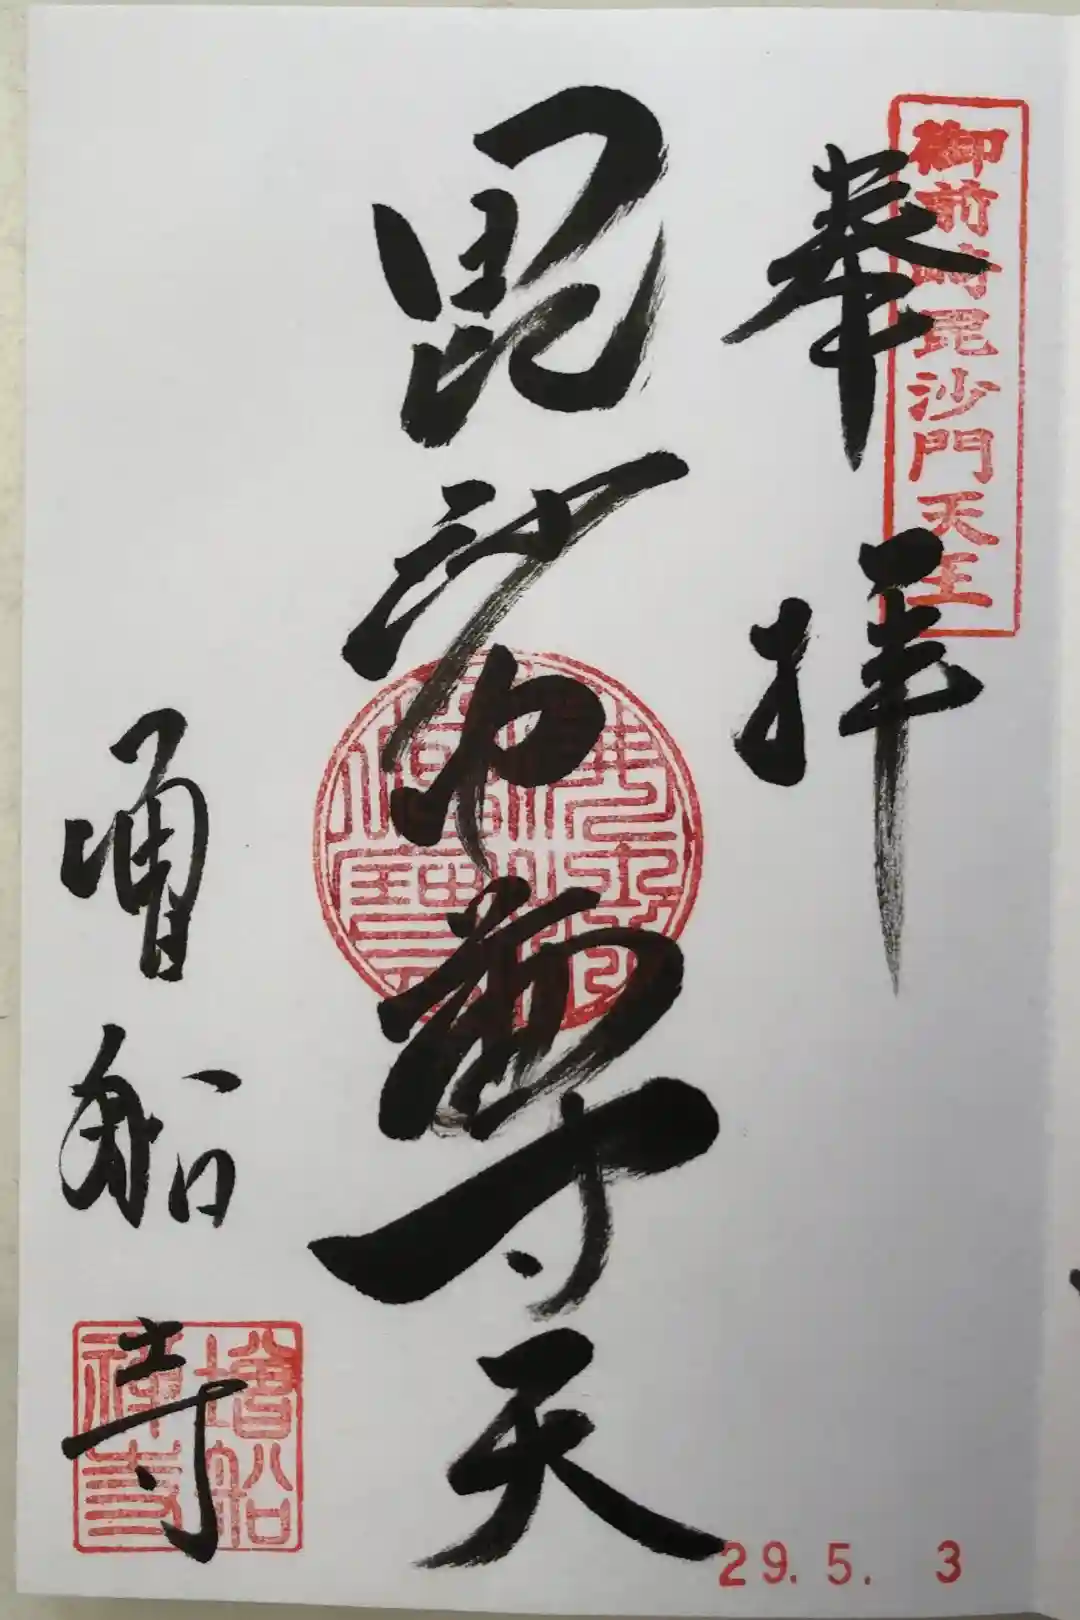 御前崎毘沙門天王
奉拝
毘沙門尊天
増船寺
増船
禅寺
29.5.3